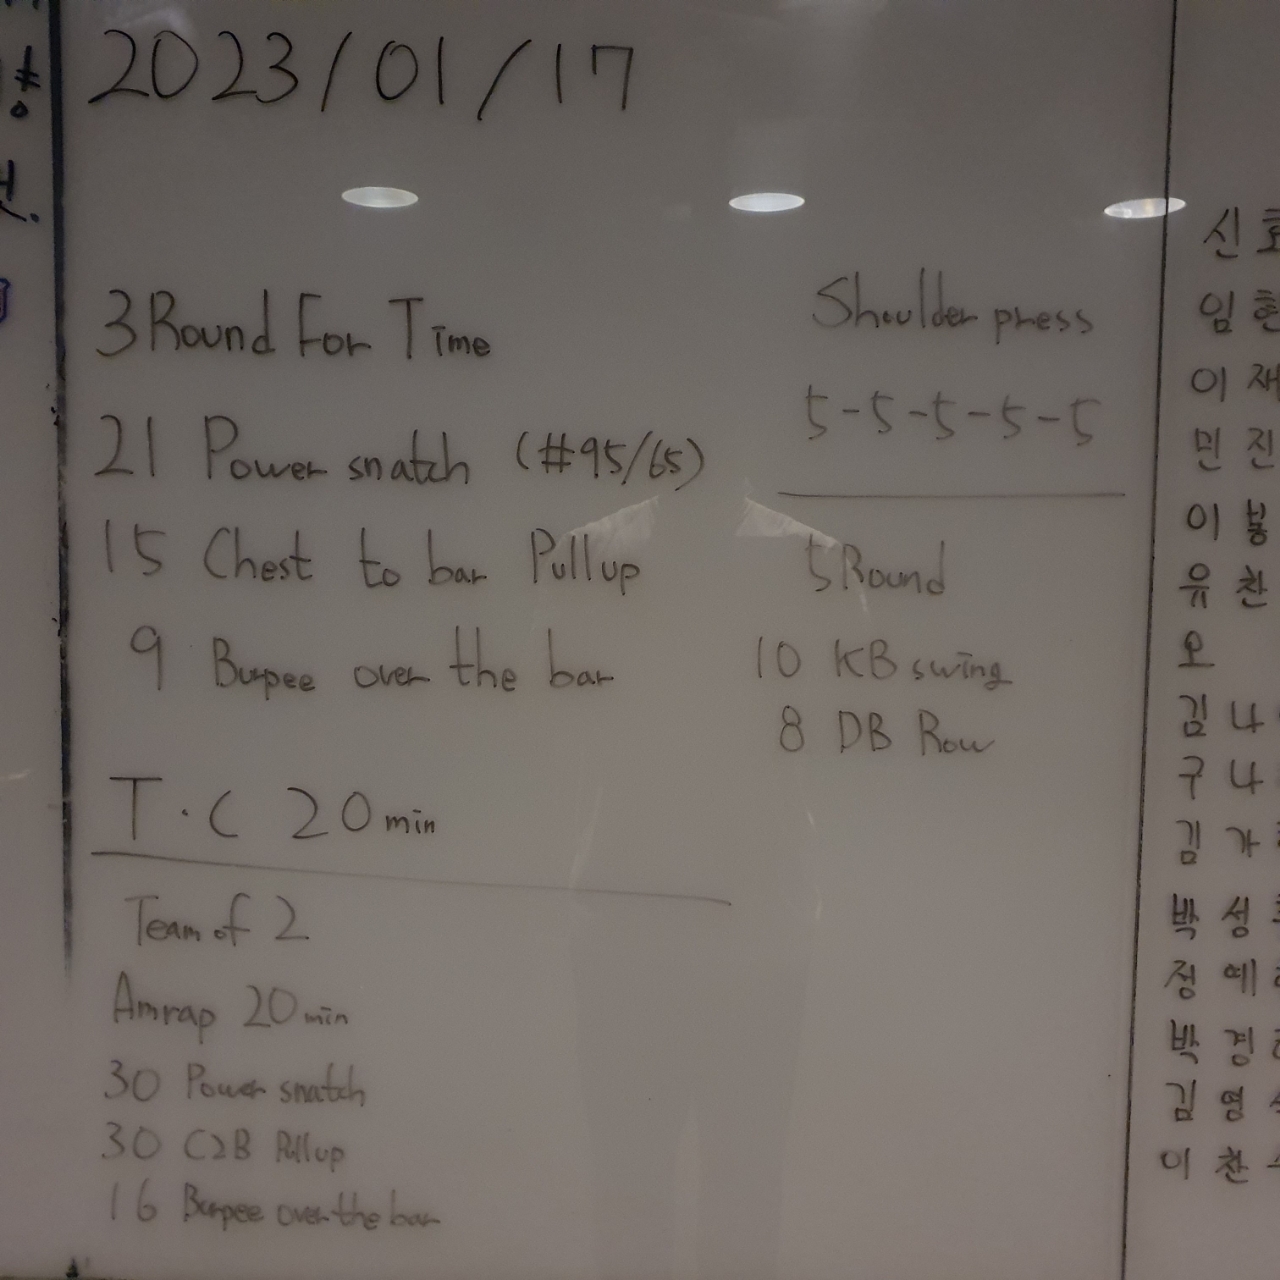 2023/01/17
3 Round For Time
21 Power snatch (#95/65)
15 Chest to bar Pull up
9 Burpee over the bar
T.C 20 min
Team of 2
Amrap 20 min
30 Power snatch
30 C2B Pull up
16 Burpee over the bar
Shoulder press
5-5-5-5-5
5 Round
10 KB swing
8 DB Row
신
임
이 재
민 진
이
유 찬
오
김 나
구 나
김 가
박 성
정 예
박 경
김 영
이 찬